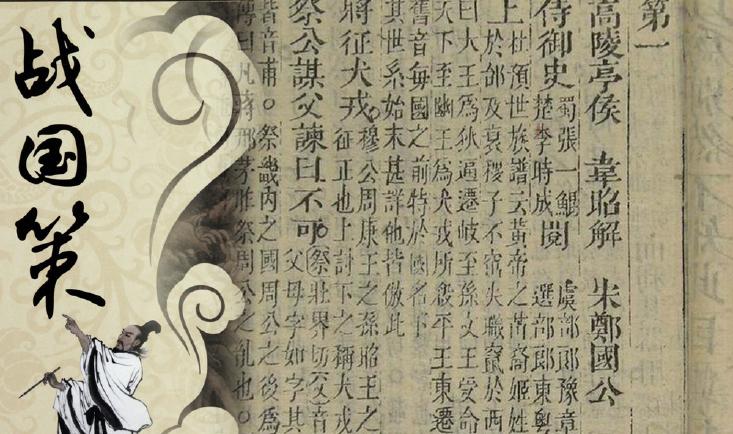 战国策
第一
高陵亭侯 韋昭解 朱鄭國公
侍御史 蜀張一鯤 楚李時成 閱 虞部郎豫章 選部郎東粵
上 杜預世族譜云黃帝之苗裔姬姓
於邰及棄稷子不窋失職竄於西
曰大王為狄逼遷岐至孫文王受命
天下至幽王為犬戎所殺平王東遷
舊音每國之前特於國名下
其世系始末甚詳他皆倣此
將征犬戎 穆公周康王之孫昭王之
征正也上討下之稱犬戎
祭公謀父諫曰不可 祭莊界切父音
父母字如字其
皆音甫。祭畿內之國周公之後為
傳曰凡蔣邢茅胙祭周公之胤也。